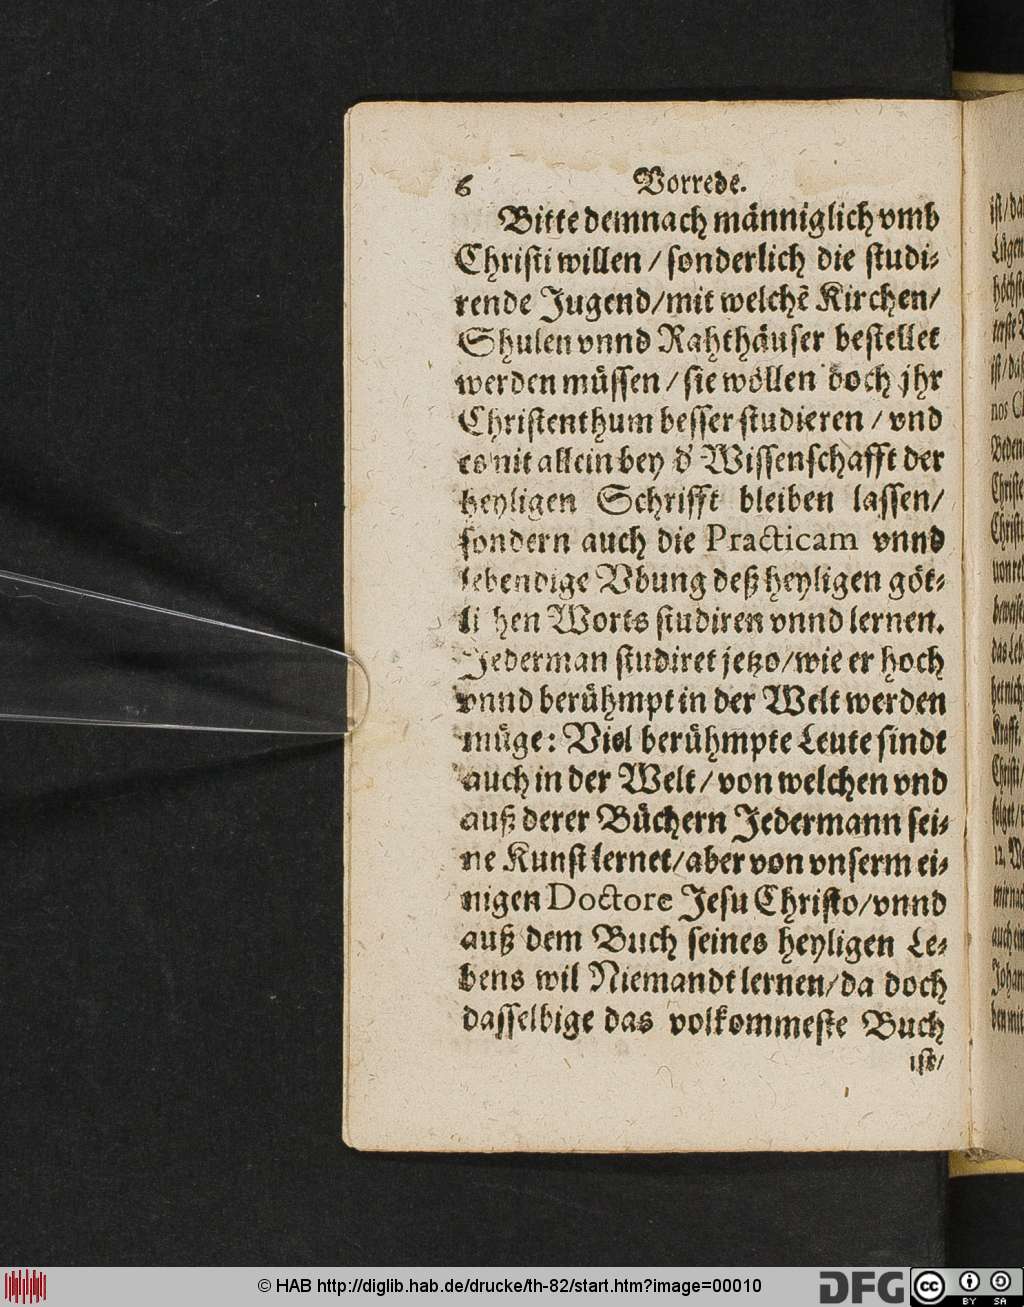 6 Vorrede.
Bitte demnach männiglich vmb
Christi willen / sonderlich die studi-
rende Jugend/mit welchē Kirchen/
Shulen vnnd Rahthäuser bestellet
werden müssen / sie wöllen doch jhr
Christenthum besser studieren / vnd
es nit allein bey d' Wissenschafft der
heyligen Schrifft bleiben lassen/
sondern auch die Practicam vnnd
lebendige Vbung deß heyligen göt-
li hen Worts studiren vnnd lernen.
Jederman studiret jetzo/wie er hoch
vnnd berühmpt in der Welt werden
müge: Viel berühmpte Leute sindt
auch in der Welt / von welchen vnd
auß derer Büchern Jedermann sei-
ne Kunst lernet/aber von vnserm ei-
nigen Doctore Jesu Christo/vnnd
auß dem Buch seines heyligen Le-
bens wil Niemandt lernen/da doch
dasselbige das volkommeste Buch
ist/
© HAB http://diglib.hab.de/drucke/th-82/start.htm?image=00010
DFG
cc
BY SA